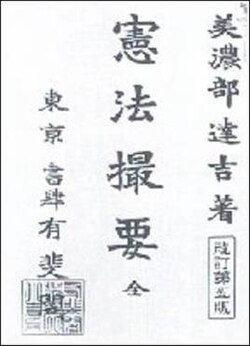 美濃部達吉著
改訂第五版
憲法撮要 全
東京 書肆 有斐閣